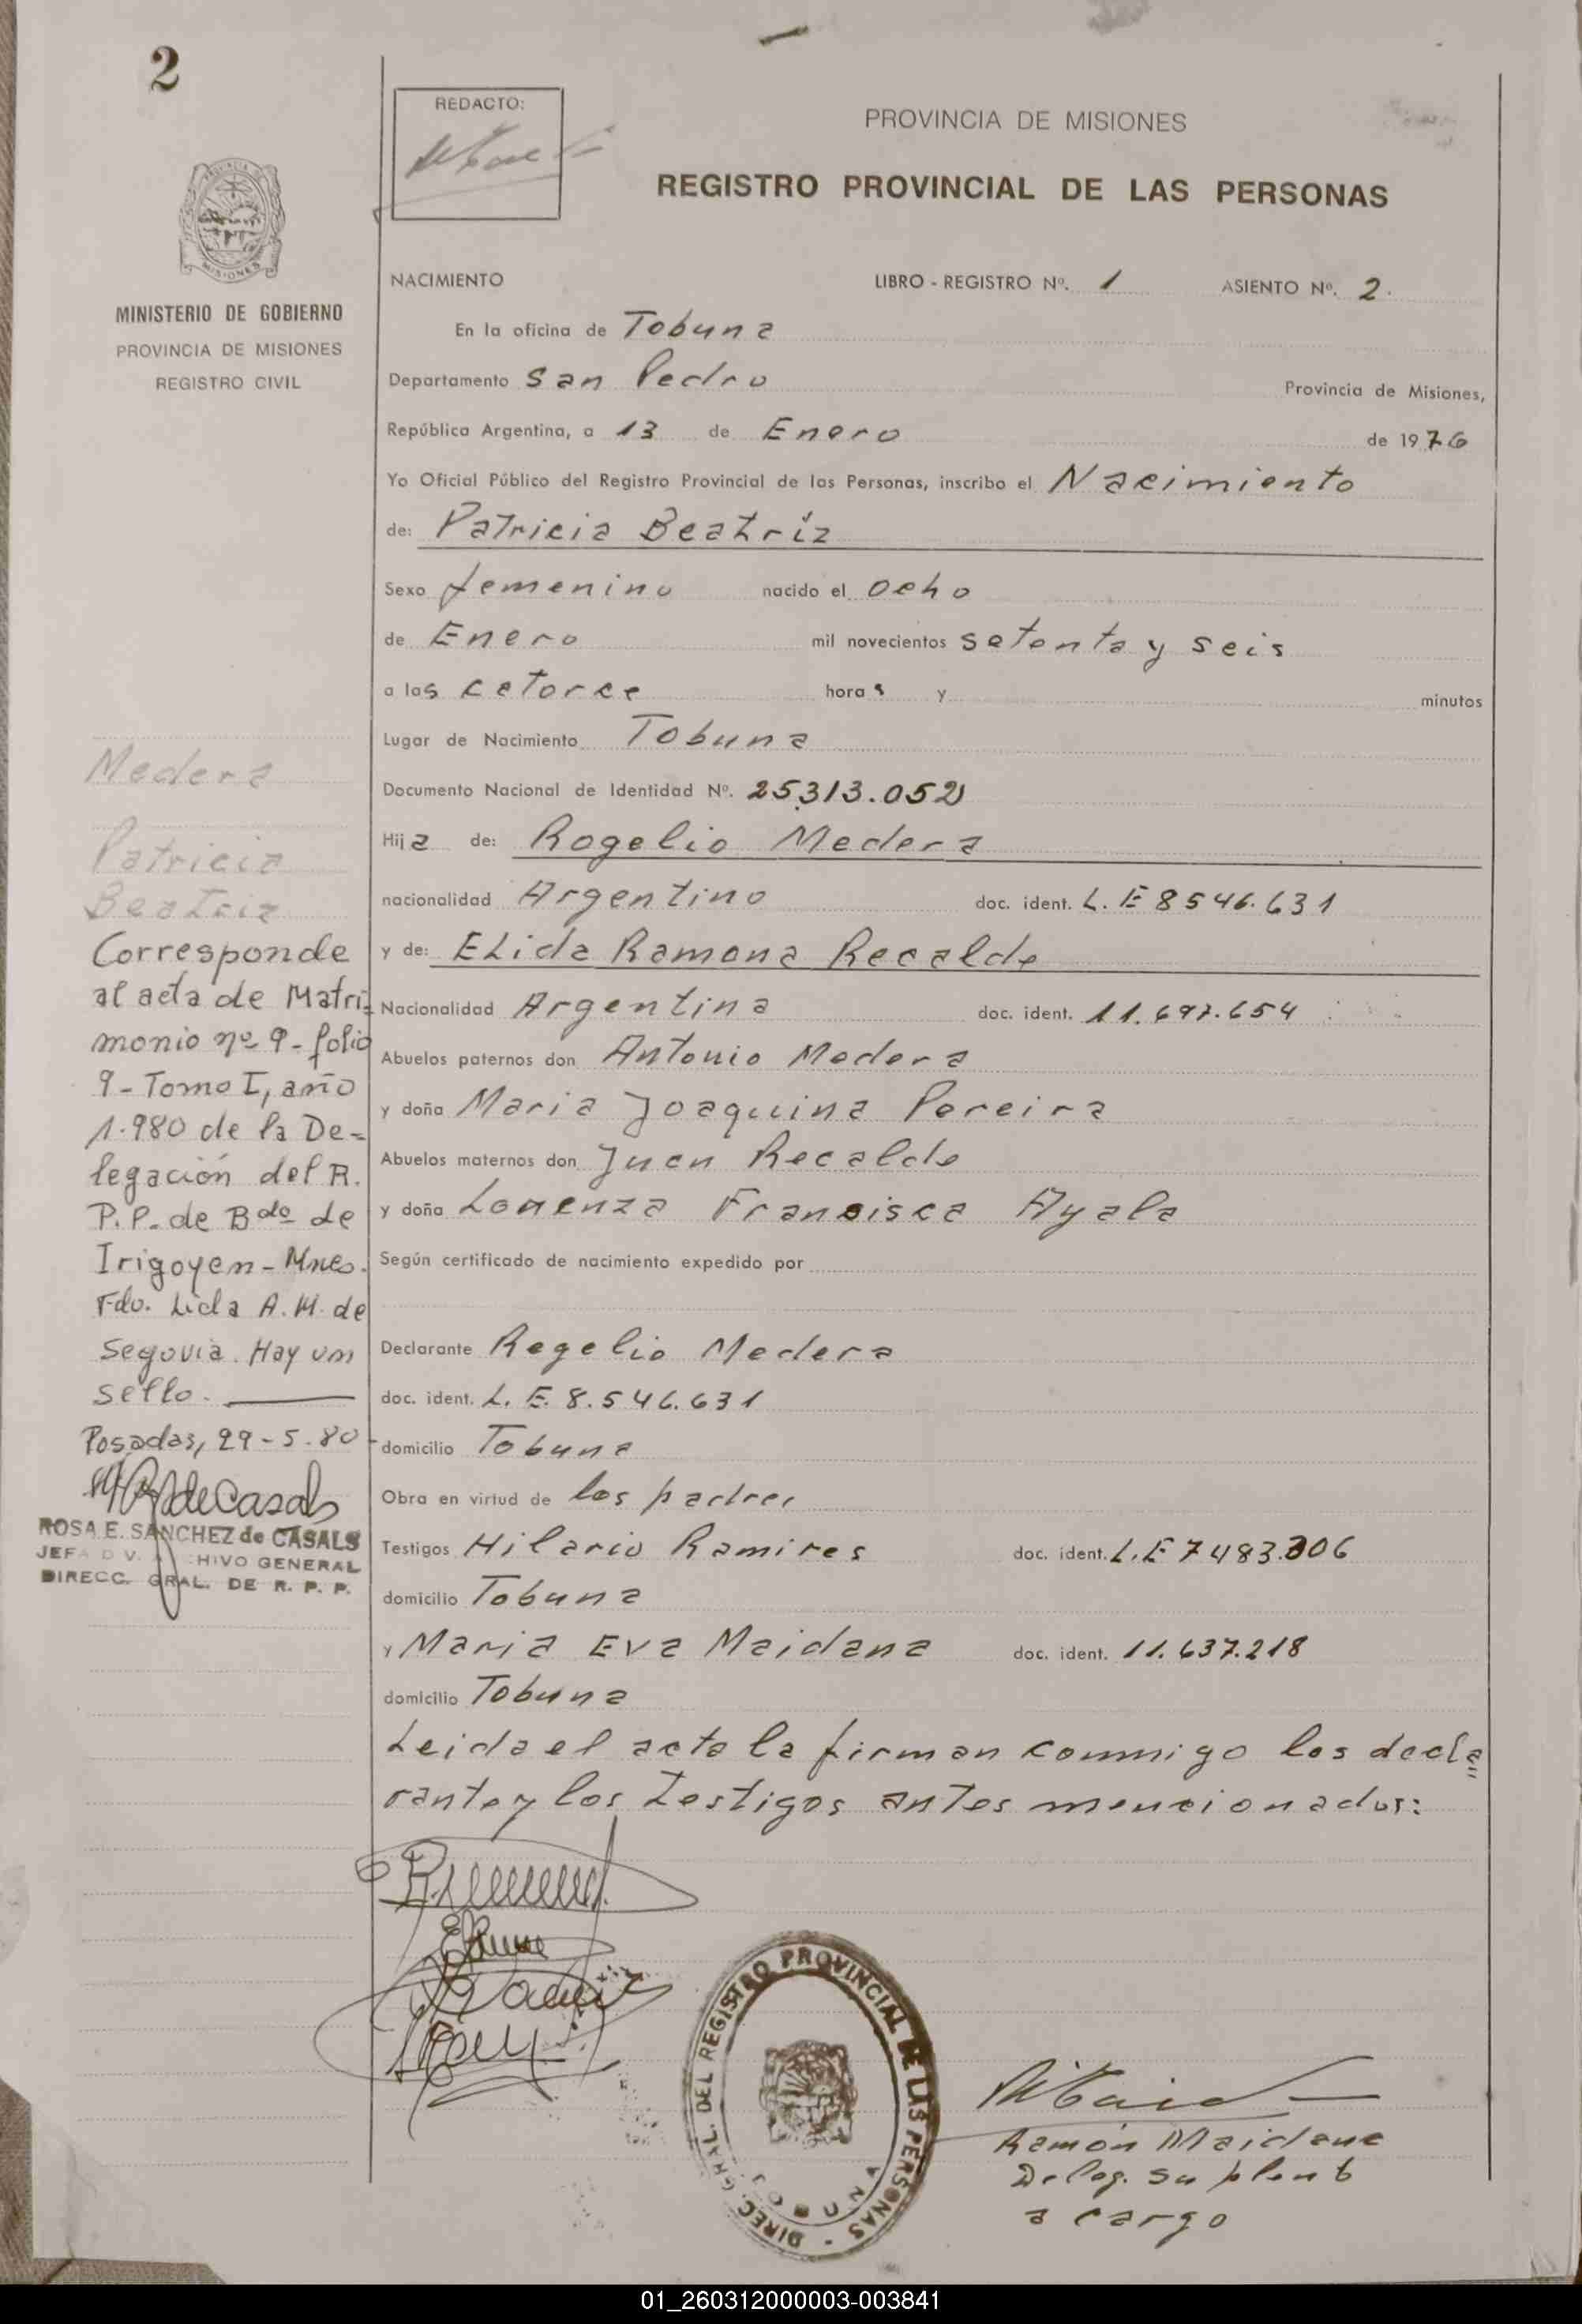 2
REDACTO:
PROVINCIA DE MISIONES
REGISTRO PROVINCIAL DE LAS PERSONAS
MISIONES
MINISTERIO DE GOBIERNO
PROVINCIA DE MISIONES
REGISTRO CIVIL
NACIMIENTO LIBRO - REGISTRO Nº. 1 ASIENTO Nº. 2.
En la oficina de Tobuna
Departamento San Pedro Provincia de Misiones,
República Argentina, a 13 de Enero de 1976
Yo Oficial Público del Registro Provincial de las Personas, inscribo el Nacimiento
de: Patricia Beatríz
Sexo femenino nacido el ocho
de Enero mil novecientos setenta y seis
a las catorce horas y minutos
Lugar de Nacimiento Tobuna
Documento Nacional de Identidad Nº. 25313.052
Hija de: Rogelio Medera
nacionalidad Argentino doc. ident. L. E 8546.631
y de: ELida Ramona Recalde
Nacionalidad Argentina doc. ident. 11.697.654
Abuelos paternos don Antonio Medera
y doña Maria Joaquina Pereira
Abuelos maternos don Juan Recalde
y doña Lorenza Fransisca Ayala
Según certificado de nacimiento expedido por
Declarante Rogelio Medera
doc. ident. L. E. 8.546.631
domicilio Tobuna
Obra en virtud de los padres
Testigos Hilario Ramires doc. ident. L.E 7483.306
domicilio Tobuna
y Maria Eva Maidana doc. ident. 11.637.218
domicilio Tobuna
Leida el acta la firman conmigo los decla
rante y los testigos antes mencionados:
Medera
Patricia
Beatriz
Corresponde
al acta de Matri=
monio nº 9 - folio
9 - Tomo I, año
1.980 de la De=
legación del R.
P.P. de Bdo de
Irigoyen - Mnes.
Fdo. Lida A. M. de
Segovia. Hay un
sello.
Posadas, 29-5-80
ROSA E. SANCHEZ de CASALS
JEFA DIV. ARCHIVO GENERAL
DIRECC. GRAL. DE R. P. P.
DIREC. GRAL. DEL REGISTRO PROVINCIAL DE LAS PERSONAS
TOBUNA
Ramón Maidana
Deleg. suplent
a cargo
01_260312000003-003841